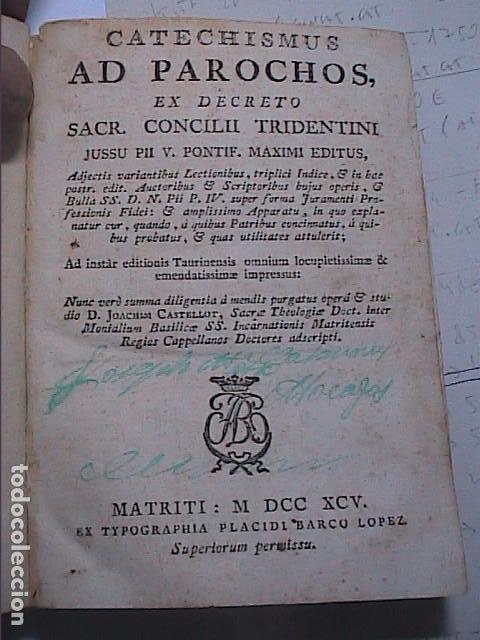 CATECHISMUS
AD PAROCHOS,
EX DECRETO
SACR. CONCILII TRIDENTINI
JUSSU PII V. PONTIF. MAXIMI EDITUS,
Adjectis variantibus Lectionibus, triplici Indice, & in hac
postr. edit. Auctoribus & Scriptoribus hujus operis, &
Bulla SS. D. N. Pii P. IV. super forma Juramenti Pro-
fessionis Fidei: & amplissimo Apparatu, in quo expla-
natur cur, quando, á quibus Patribus concinnatus, á qui-
bus probatus, & quas utilitates attulerit;
Ad instàr editionis Taurinensis omnium locupletissimæ &
emendatissimæ impressus:
Nunc verò summa diligentia á mendis purgatus operâ & stu-
dio D. JOACHIM CASTELLOT, Sacræ Theologiæ Doct. inter
Monialium Basilicæ SS. Incarnationis Matritensis
Regios Cappellanos Doctores adscripti.
Joseph
MATRITI: M DCC XCV.
EX TYPOGRAPHIA PLACIDI BARCO LOPEZ.
Superiorum permissu.
todocoleccion.net